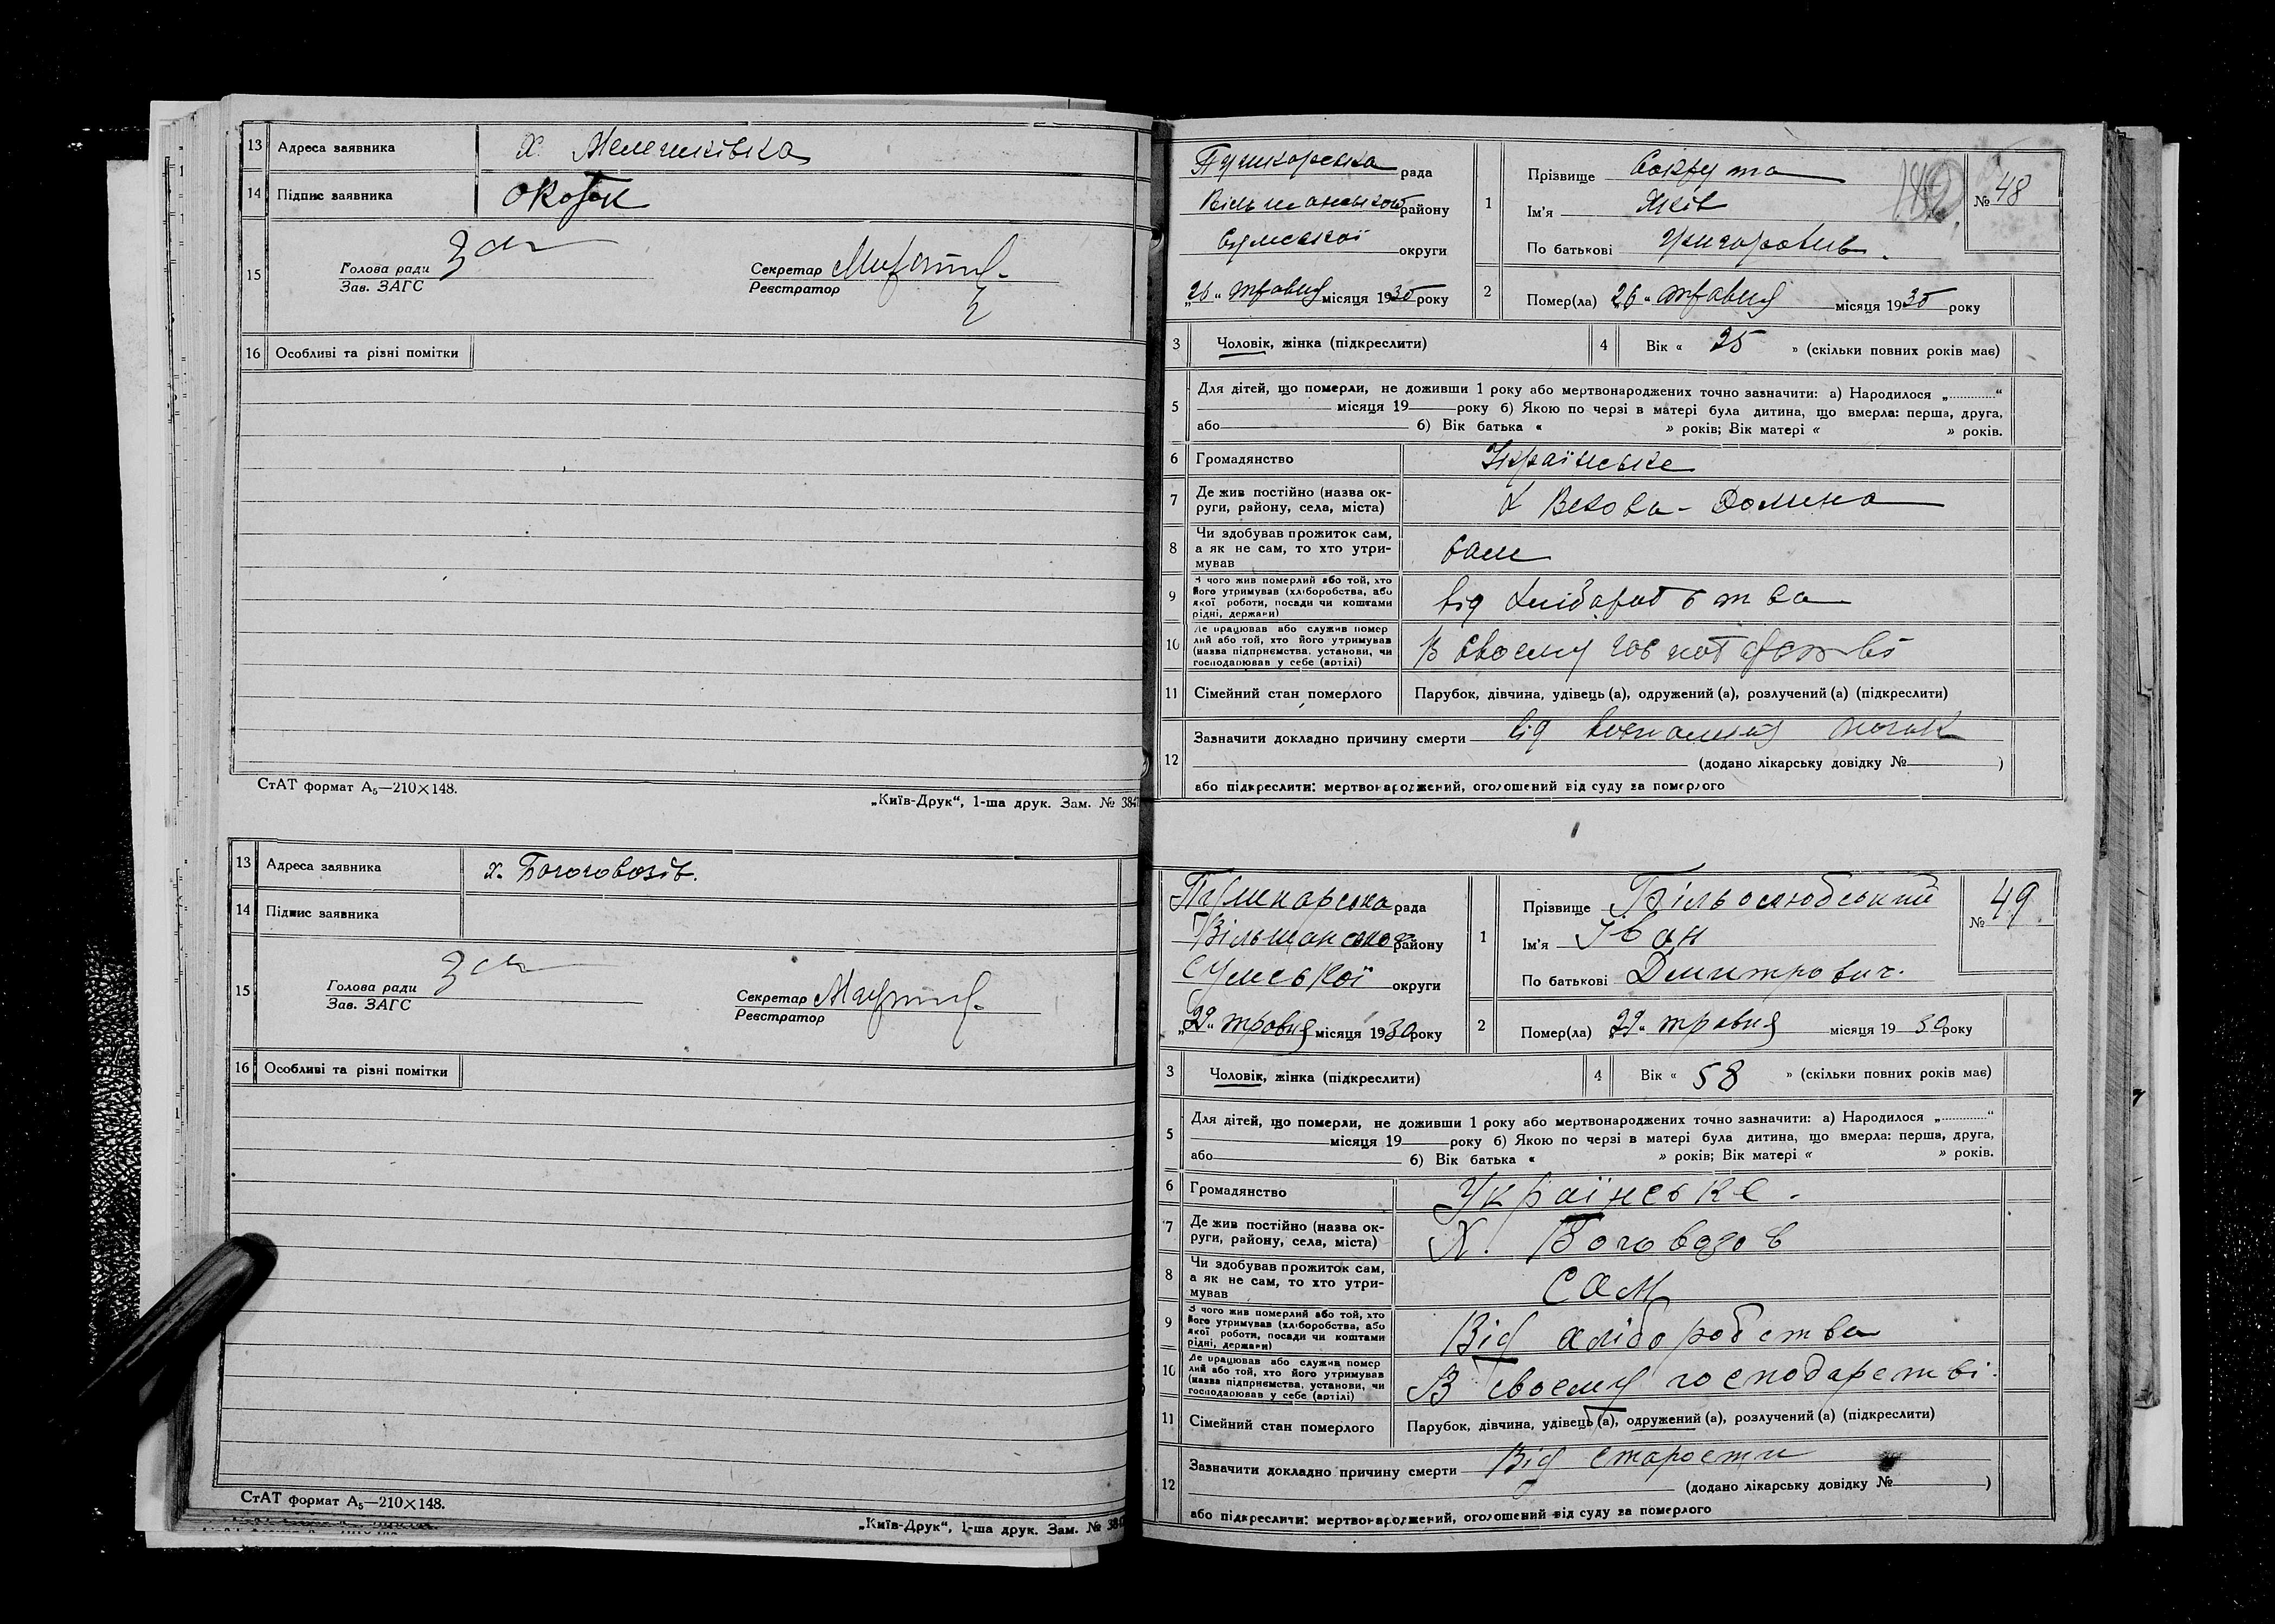 13 Адреса заявника х. Мелешківка
14 Підпис заявника
15 Голова ради Зам
Зав. ЗАГС
Секретар
Реєстратор
16 Особливі та різні помітки
СтАТ формат А₅—210×148.
„Київ-Друк“, 1-ша друк. Зам. № 384
13 Адреса заявника х.
14 Підпис заявника
15 Голова ради Зам
Зав. ЗАГС
Секретар
Реєстратор
16 Особливі та різні помітки
СтАТ формат А₅—210×148.
„Київ-Друк“, 1-ша друк. Зам. № 384
Пушкарська рада
Вільшанського району
Сумської округи
„26“ травня місяця 1930 року
1 Прізвище Сокрута
Ім'я Яків
По батькові Григорович.
№ 48
2 Помер(ла) „26“ травня місяця 1930 року
3 Чоловік, жінка (підкреслити)
4 Вік « 25 » (скільки повних років має)
5 Для дітей, що померли, не доживши 1 року або мертвонароджених точно зазначити: а) Народилося „............“
місяця 19 року б) Якою по черзі в матері була дитина, що вмерла: перша, друга,
або б) Вік батька « » років; Вік матері « » років.
6 Громадянство Українське
7 Де жив постійно (назва ок-
руги, району, села, міста) х Векова-Долина
8 Чи здобував прожиток сам,
а як не сам, то хто утри-
мував сам
9 З чого жив померлий або той, хто
його утримував (хліборобства, або
якої роботи, посади чи коштами
рідні, держави) від хліборобства
10 Де працював або служив помер
лий або той, хто його утримував
(назва підприємства, установи, чи
господарював у себе (артілі) В своєму господарстві
11 Сімейний стан померлого Парубок, дівчина, удівець (а), одружений (а), розлучений (а) (підкреслити)
12 Зазначити докладно причину смерти від
(додано лікарську довідку № )
або підкреслити: мертвонароджений, оголошений від суду за померлого
Пушкарська рада
Вільшанського району
Сумської округи
„29“ травня місяця 1930 року
1 Прізвище Вільослюбський
Ім'я Іван
По батькові Дмитрович.
№ 49
2 Помер(ла) „29“ травня місяця 1930 року
3 Чоловік, жінка (підкреслити)
4 Вік « 58 » (скільки повних років має)
5 Для дітей, що померли, не доживши 1 року або мертвонароджених точно зазначити: а) Народилося „............“
місяця 19 року б) Якою по черзі в матері була дитина, що вмерла: перша, друга,
або б) Вік батька « » років; Вік матері « » років.
6 Громадянство Українське.
7 Де жив постійно (назва ок-
руги, району, села, міста) Х. Боговозов
8 Чи здобував прожиток сам,
а як не сам, то хто утри-
мував Сам
9 З чого жив померлий або той, хто
його утримував (хліборобства, або
якої роботи, посади чи коштами
рідні, держави) Від хліборобства
10 Де працював або служив помер
лий або той, хто його утримував
(назва підприємства, установи, чи
господарював у себе (артілі) В своєму господарстві.
11 Сімейний стан померлого Парубок, дівчина, удівець (а), одружений (а), розлучений (а) (підкреслити)
12 Зазначити докладно причину смерти Від старости
(додано лікарську довідку № )
або підкреслити: мертвонароджений, оголошений від суду за померлого